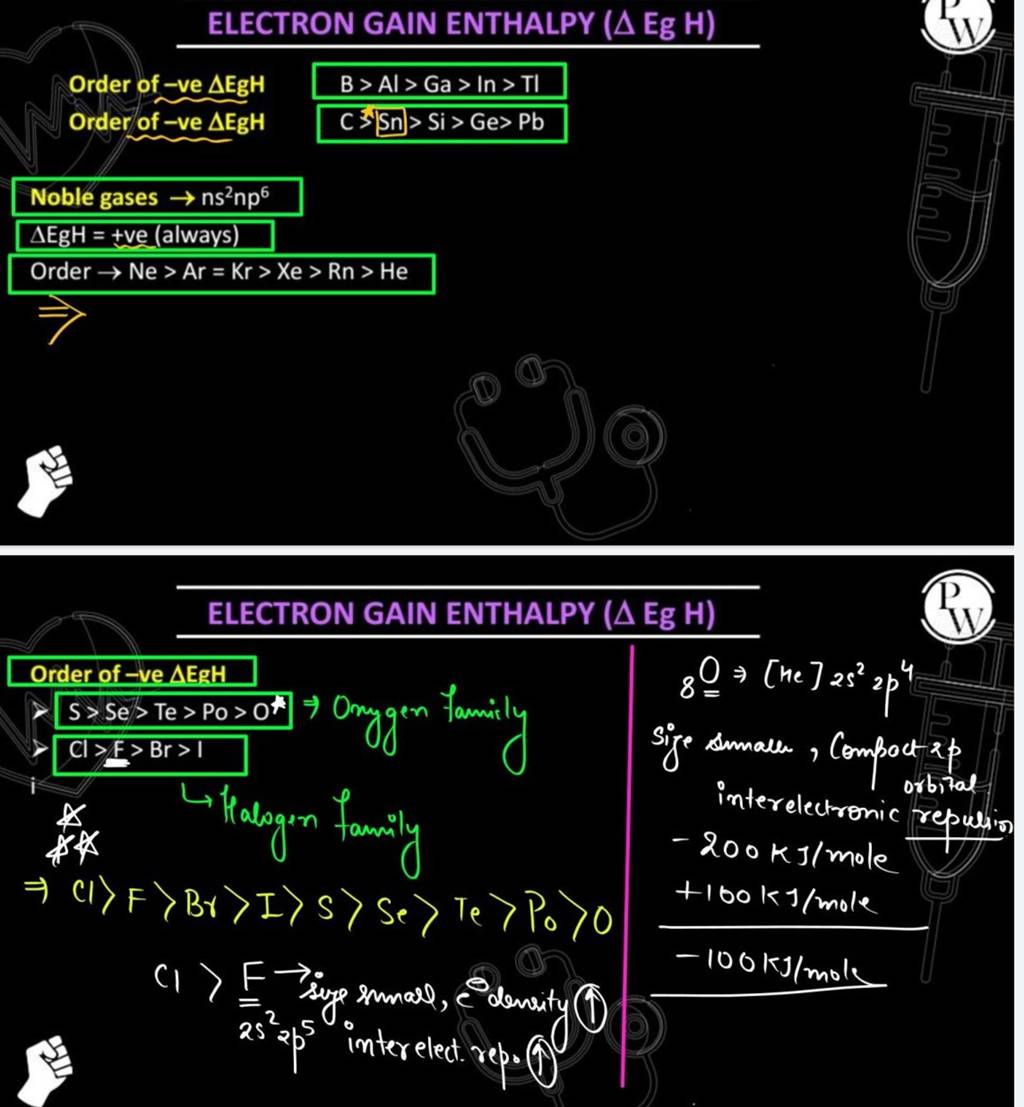 ELECTRON GAIN ENTHALPY (Δ Eg H)
PW
Order of –ve ΔEgH B > Al > Ga > In > Tl
Order of –ve ΔEgH C > Sn > Si > Ge> Pb
Noble gases → ns²np⁶
ΔEgH = +ve (always)
Order → Ne > Ar = Kr > Xe > Rn > He
⇒
ELECTRON GAIN ENTHALPY (Δ Eg H)
PW
Order of –ve ΔEgH
➤ S > Se > Te > Po > O* ⇒ Oxygen family
➤ Cl > F > Br > I
i
↳ Halogen family
⇒ Cl > F > Br > I > S > Se > Te > Po > O
Cl > F → size small, e⊖ density ↑
2s² 2p⁵ interelect. rep. ↑
₈O ⇒ [He] 2s² 2p⁴
size smaller, Compact 2p
orbital
interelectronic repulsion
- 200 KJ/mole
+100 KJ/mole
-100 KJ/mole